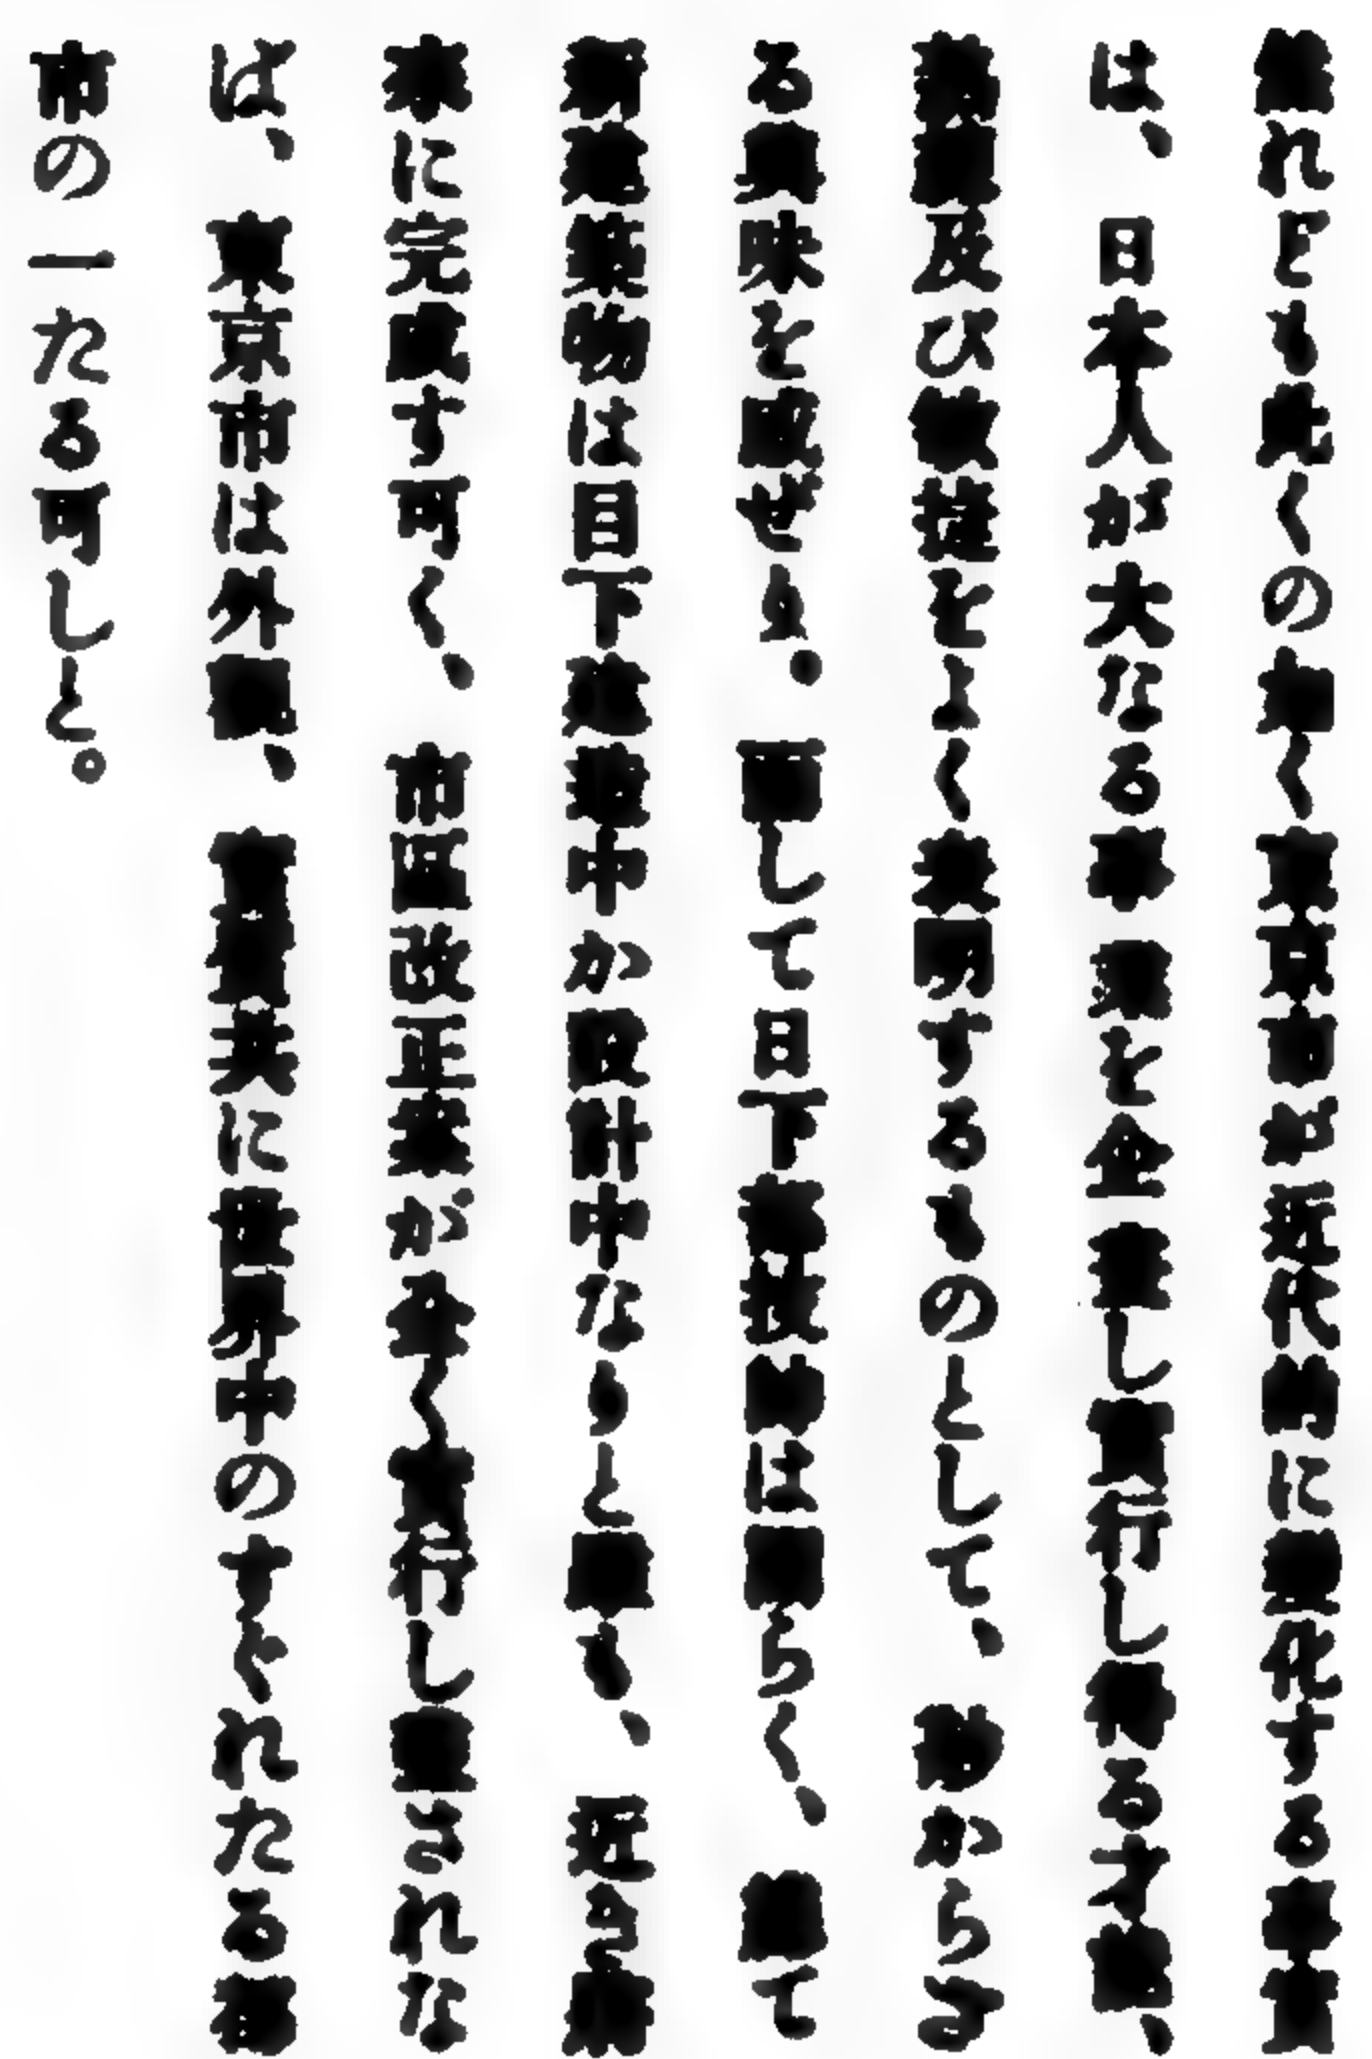 然れども此くの如く東京市が近代的に變化する事實
は、日本人が大なる事業を企畫し實行し得る才能、
及び敏捷をよく表明するものとして、尠からざ
る興味を感ぜり。而して目下各技師は聞らく、總て
新建築物は目下建造中か設計中なりと雖も、近き將
來に完成す可く、市區改正案が全く實行し盡されな
ば、東京市は外觀、實質共に世界中のすぐれたる都
市の一たる可しと。